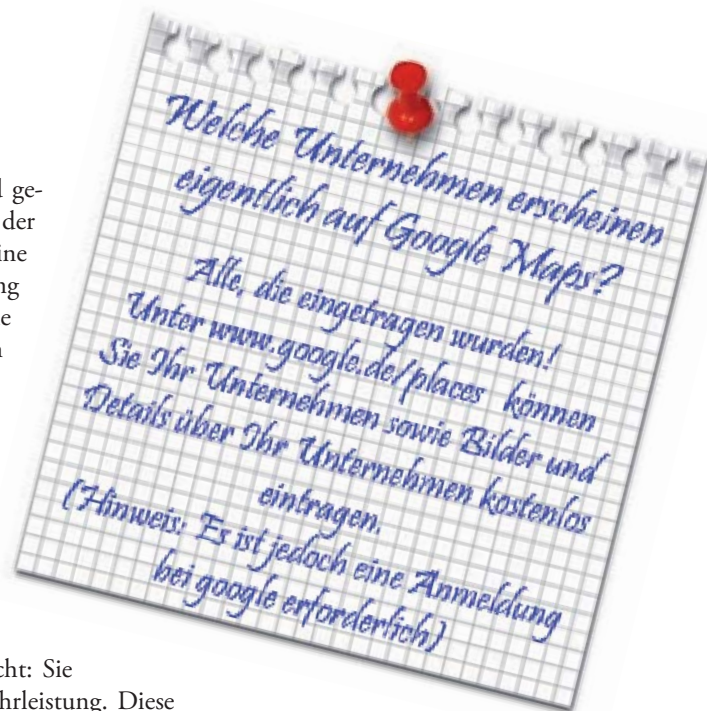 ge-
der
ine
ng
e
Welche Unternehmen erscheinen
eigentlich auf Google Maps?
Alle, die eingetragen wurden!
Unter www.google.de/places können
Sie Ihr Unternehmen sowie Bilder und
Details über Ihr Unternehmen kostenlos
eintragen.
(Hinweis: Es ist jedoch eine Anmeldung
bei google erforderlich)
cht: Sie
hrleistung. Diese